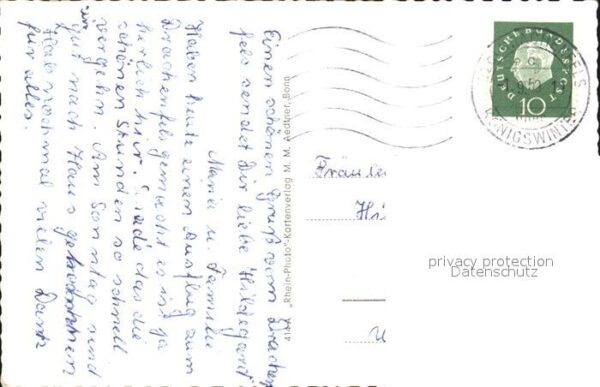 Einen schönen Gruß vom Drachen
fels sendet Dir liebe Hildegard
Maria u. Familie
Haben heute einen Ausflug zum
Drachenfels gemacht es ist ja
herrlich hier. Schade das die
schönen Stunden so schnell
vergehn. Am Sonntag sind
wir
gut nach Haus gekommen
Hab nochmal vielen Dank
für alles.
414 A „Rhein-Photo"-Kartenverlag M. M. Aedtner, Bonn
DEUTSCHE BUNDESPOST
10
KÖNIGSWINTER
Fräulein
Hi
privacy protection
Datenschutz